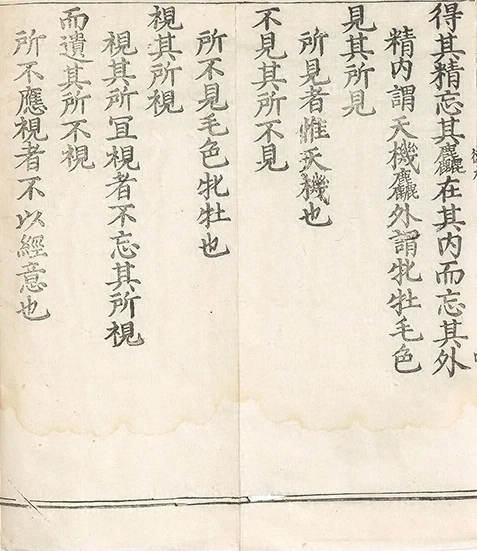 得其精忘其麤在其内而忘其外
精内謂天機麤外謂牝牡毛色
見其所見
所見者惟天機也
不見其所不見
所不見毛色牝牡也
視其所視
視其所冝視者不忘其所視
而遺其所不視
所不應視者不以經意也